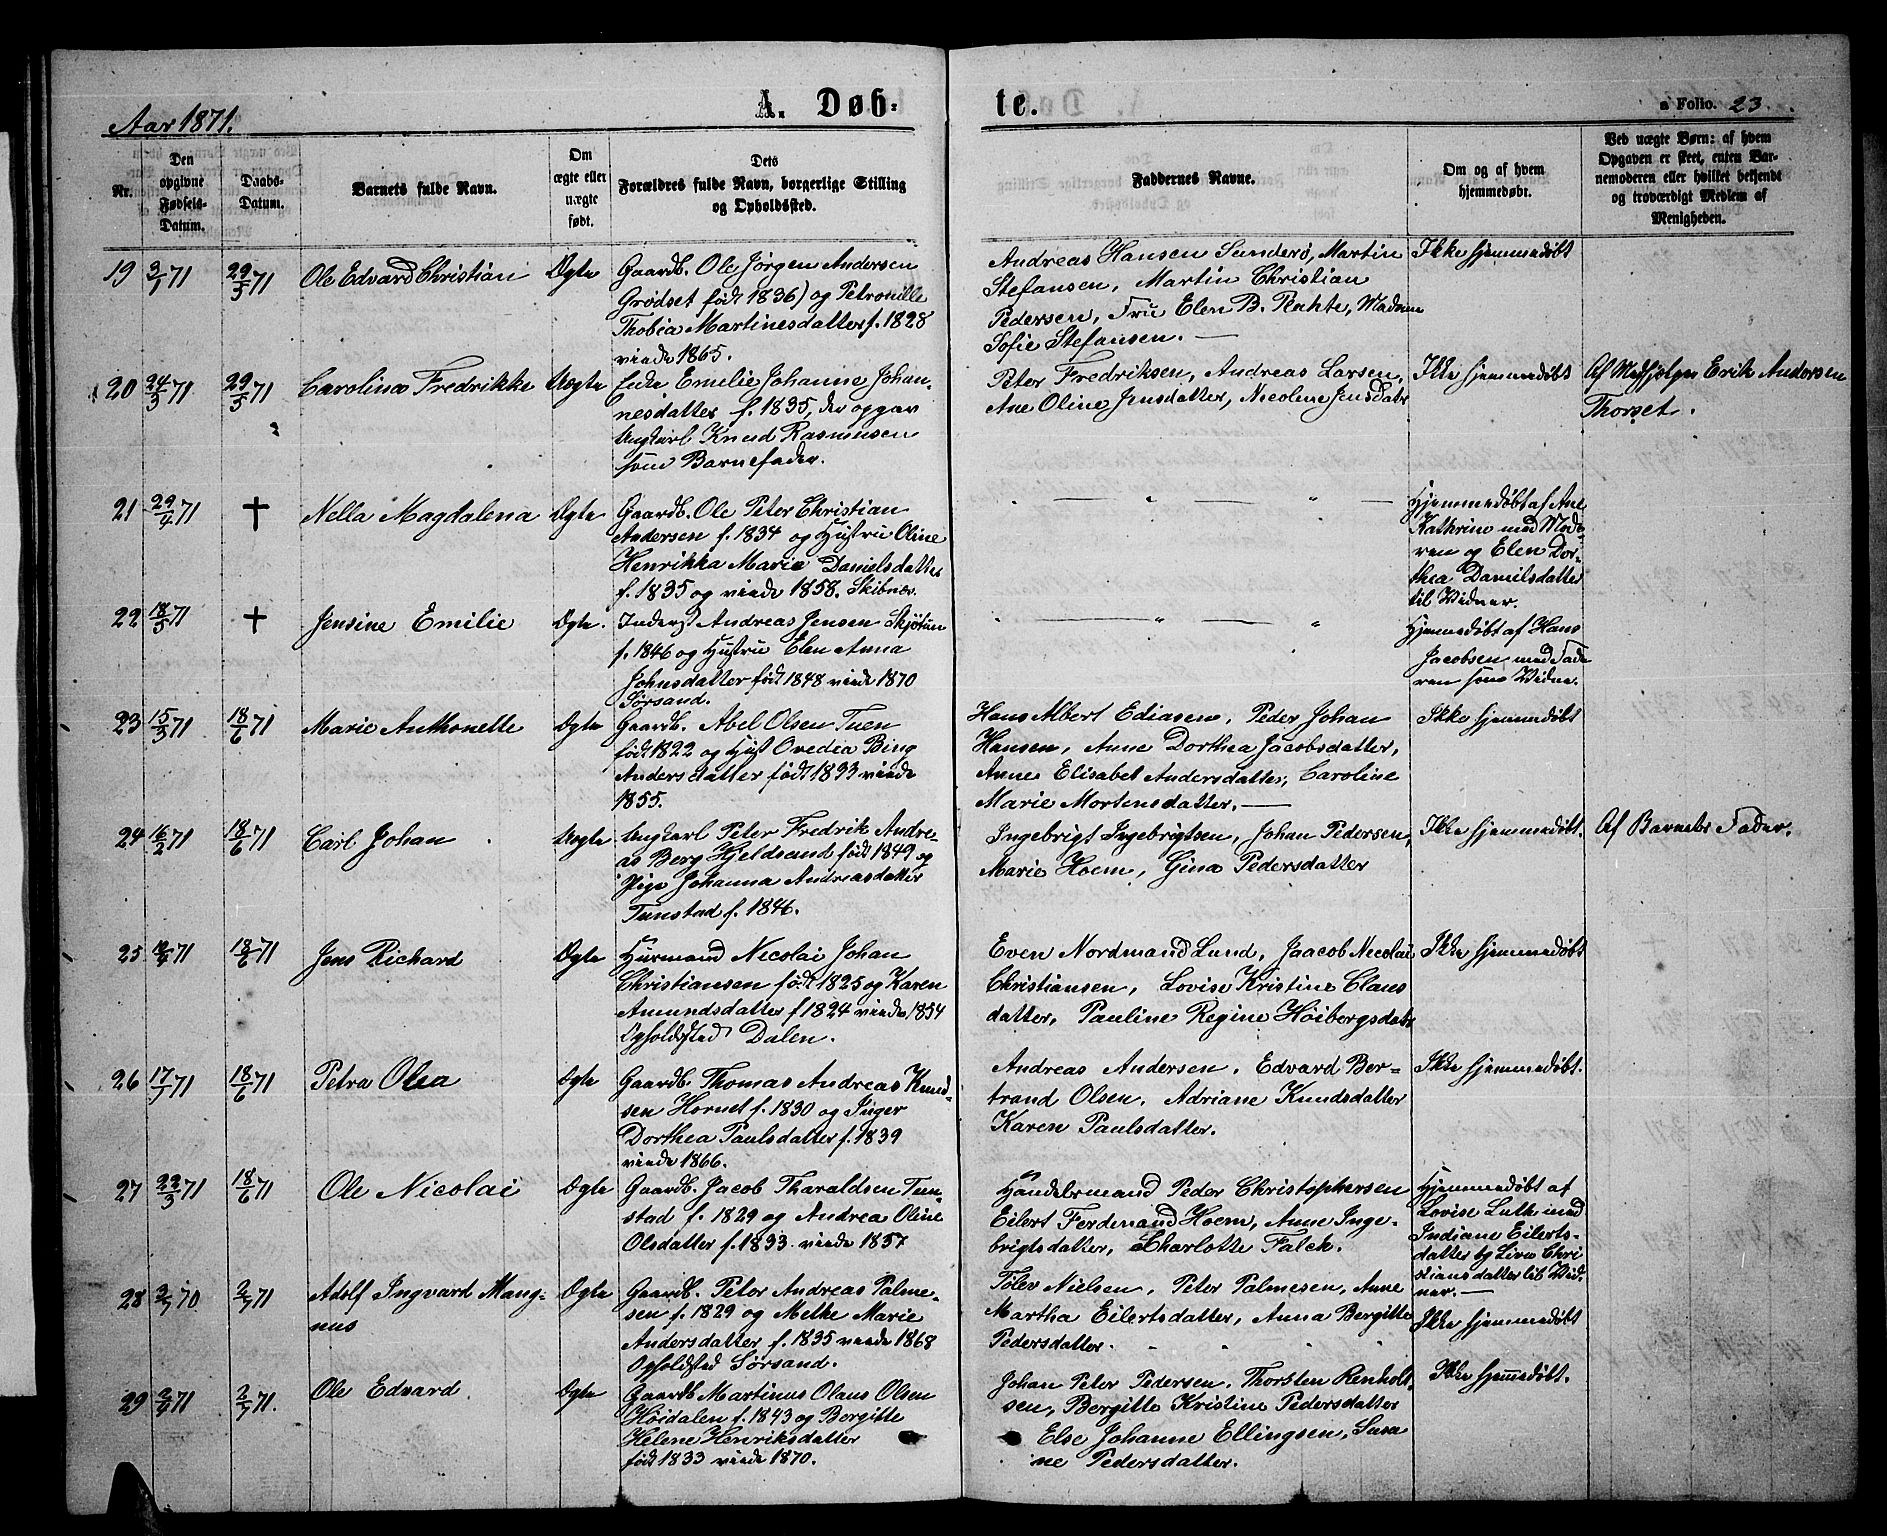 Aar 1871.
A. Døb-
te.
Folio. 23.
Nr.
Den opgivne Fødsels-Datum.
Daabs-Datum.
Barnets fulde Navn.
Om ægte eller uægte født.
Dets Forældres fulde Navn, borgerlige Stilling og Opholdssted.
Faddernes Navne.
Om og af hvem hjemmedøbt.
Ved uægte Børn: af hvem Opgaven er skeet, enten Barnemoderen eller hvilket bekjendt og troværdigt Medlem af Menigheden.
19 71 29/5 71 Ole Edvard Christian Ægte
Gaardb. Ole Jørgen Andersen
Grødset født 1836) og Petronille
Thobia Martinesdatter f. 1828
viede 1865.
Andreas Hansen Sunderø, Martin
Stefansen, Martin Christian
Pedersen, Fru Elen B. Madame
Sofie Stefansen.
Ikke hjemmedøbt
20 24/5 71 29/5 71 Carolina Fredrikke Uægte
Enke Emelie Johanne Johan-
nesdatter f. 1835, der opgav
Ungkarl Knud Rasmussen
som Barnefader.
Peter Fredriksen, Andreas Larsen,
Ane Oline Jensdatter, Nicoline Jensdatr
Ikke hjemmedøbt
Af Medhjelper Erik Andersen
Thorset.
21 29/4 71 † Nella Magdalena Ægte
Gaardb. Ole Peter Christian
Andersen f. 1834 og Hustru Oline
Henrikka Maria Danielsdatter
f. 1835 og viede 1858. Skibnæs.
Hjemmedøbt af Ane
Kathrine med Mode-
ren og Elen Dor-
thea Danielsdatter
til Vidner.
22 18/5 71 † Jensine Emilie Ægte.
Inderst Andreas Jensen Skjøtun
f. 1846 og Hustru Elen Anna
Johnsdatter født 1848 viede 1870
Sørsand.
Hjemmedøbt af Hans
Jacobsen med Fade
ren som Vidne.
23 71 18/6 71 Marie Anthonette Ægte
Gaardb. Abel Olsen Tuen
født 1822 og Hust Ovedia Bing
Andersdatter født 1833 viede
1855.
Hans Albert Ediasen, Peder Johan
Hansen, Anne Dorthea Jacobsdatter,
Anne Elisabet Andersdatter, Caroline
Marie Mortensdatter.
Ikke hjemmedøbt
24 16/2 71 18/6 71 Carl Johan Uægte
Ungkarl Peter Fredrik Andre-
as Berg Hjeldsand født 1849 og
Pige Johanna Andreasdatter
Tunstad f. 1846.
Ingebrigt Ingebrigtsen, Johan Pedersen,
Marie Hoem, Gina Pedersdatter
Ikke hjemmedøbt.
Af Barnets Fader.
25 71 18/6 71 Jens Richard Ægte
Huusmand Nicolai Johan
Christiansen født 1825 og Karen
Amundsdatter f 1824 viede 1854
Opholdsted Dalen.
Even Nordmand Lund, Jaacob Nicolai
Christiansen, Lovise Kristine Claus
datter, Pauline Regine Høibergsdatr
Ikke hjemmedøbt
26 71 18/6 71 Petra Olea Ægte
Gaardb. Thomas Andreas Knud-
sen Hornet f. 1830 og Inger
Dorthea Paulsdatter f. 1839
viede 1866.
Andreas Andersen, Edvard Ber-
trand Olsen, Adriane Knudsdatter
Karen Paulsdatter.
Ikke hjemmedøbt.
27 22/3 71 18/6 71 Ole Nicolai Ægte
Gaardb. Jacob Tharaldsen Tun-
stad f. 1829 og Andrea Oline
Olsdatter f. 1833 viede 1857
Handelsmand Peder Christophersen
Eilert Ferdinand Hoem, Anne Inge-
brigtsdatter, Charlotte Falck.
Hjemmedøbt af
Lovise Luth med
Indiane Eilerts-
datter og Live Chri
stiansdatter til Vid-
ner.
28 70 2/7 71 Adolf Ingvard Mang-
nus
Ægte
Gaardb. Peter Andreas Palme-
sen f. 1829 og Metke Marie
Andersdatter f. 1835 viede 1868
Opholdsted Sørsand.
Tølev Nielsen, Peter Palmesen, Anne
Martha Eilertsdatter, Anna Bergitte
Pedersdatter.
Ikke hjemmedøbt
29 71 2/7 71. Ole Edvard. Ægte
Gaardb. Martinus Olaus Olsen
Høidalen f. 1843 og Bergitte
Helene Henriksdatter
født 1833 viede 1870.
Johan Peter Pedersen, Thorsten Renholt-
sen, Bergitte Kristine Pedersdatter
Else Johanne Ellingsen, Susa
ne Pedersdatter.
Ikke hjemmedøbt.